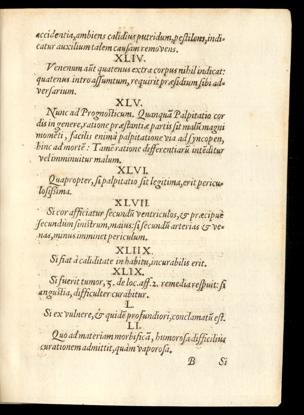 accidentia, ambiens calidius putridum, pestilens, indi-
catur auxilium talem causam removens.
XLIV.
Venenum aũt quatenus extra corpus nihil indicat:
quatenus intro assumtum, requirit præsidium sibi ad-
versarium.
XLV.
Nunc ad Prognosticum. Quanquã Palpitatio cor
dis in genere, ratione præstantiæ partis sit malũ magni
momẽti, facilis enim à palpitatione via ad syncopen,
hinc ad mortẽ: Tamẽ ratione differentiarũ intẽditur
vel imminuitur malum.
XLVI.
Quapropter, si palpitatio sit legitima, erit pericu-
losissima.
XLVII.
Si cor afficiatur secundũ ventriculos, & præcipuè
secundum sinistrum, maius: si secundũ arterias & ve-
nas, minus imminet periculum.
XLIIX.
Si fiat à caliditate in habitu, incurabilis erit.
XLIX.
Si fuerit tumor, 5. de loc. aff. 2. remedia respuit: si
angustia, difficulter curabitur.
L.
Si ex vulnere, & quidẽ profundiori, conclamatũ est.
LI.
Quo ad materiam morbificã, humorosa difficiliùs
curationem admittit, quàm vaporosa.
B Si